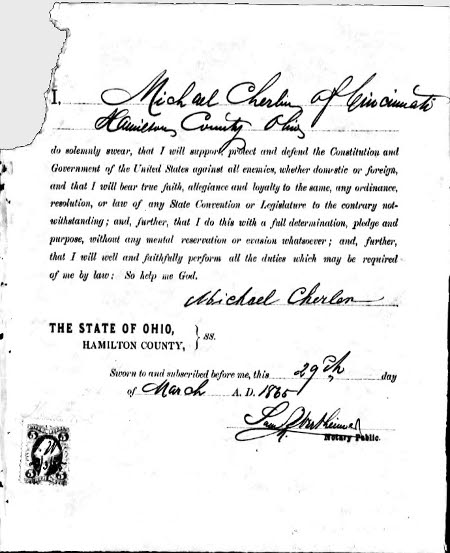 I, Michael Cherlen of Cincinnati
Hamilton County Ohio
do solemnly swear, that I will support, protect and defend the Constitution and
Government of the United States against all enemies, whether domestic or foreign,
and that I will bear true faith, allegiance and loyalty to the same, any ordinance,
resolution, or law of any State Convention or Legislature to the contrary not-
withstanding; and, further, that I do this with a full determination, pledge and
purpose, without any mental reservation or evasion whatsoever; and, further,
that I will well and faithfully perform all the duties which may be required
of me by law: So help me God.
Michael Cherlen
THE STATE OF OHIO,
HAMILTON COUNTY, } ss.
Sworn to and subscribed before me, this 29th day
of March A. D. 1865
Notary Public.